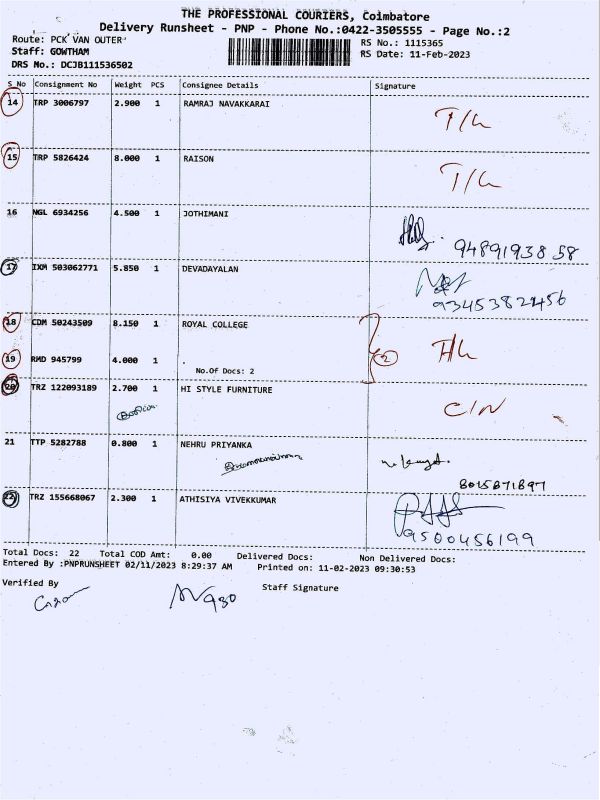 THE PROFESSIONAL COURIERS, Coimbatore
Delivery Runsheet - PNP - Phone No.:0422-3505555 - Page No.:2
Route: PCK VAN OUTER
Staff: GOWTHAM
DRS No.: DCJB111536502
RS No.: 1115365
RS Date: 11-Feb-2023
S_No Consignment No Weight PCS Consignee Details Signature
14 TRP 3006797 2.900 1 RAMRAJ NAVAKKARAI
15 TRP 5826424 8.000 1 RAISON
16 NGL 6934256 4.500 1 JOTHIMANI
9489193858
17 IXM 503062771 5.850 1 DEVADAYALAN
9345382456
18 CDM 50243509 8.150 1 ROYAL COLLEGE
19 RMD 945799 4.000 1 .
2
No.Of Docs: 2
20 TRZ 122093189 2.700 1 HI STYLE FURNITURE
C/N
21 TTP 5282788 0.800 1 NEHRU PRIYANKA
8015871897
22 TRZ 155668067 2.300 1 ATHISIYA VIVEKKUMAR
9500456199
Total Docs: 22 Total COD Amt: 0.00 Delivered Docs: Non Delivered Docs:
Entered By :PNPRUNSHEET 02/11/2023 8:29:37 AM Printed on: 11-02-2023 09:30:53
Verified By Staff Signature